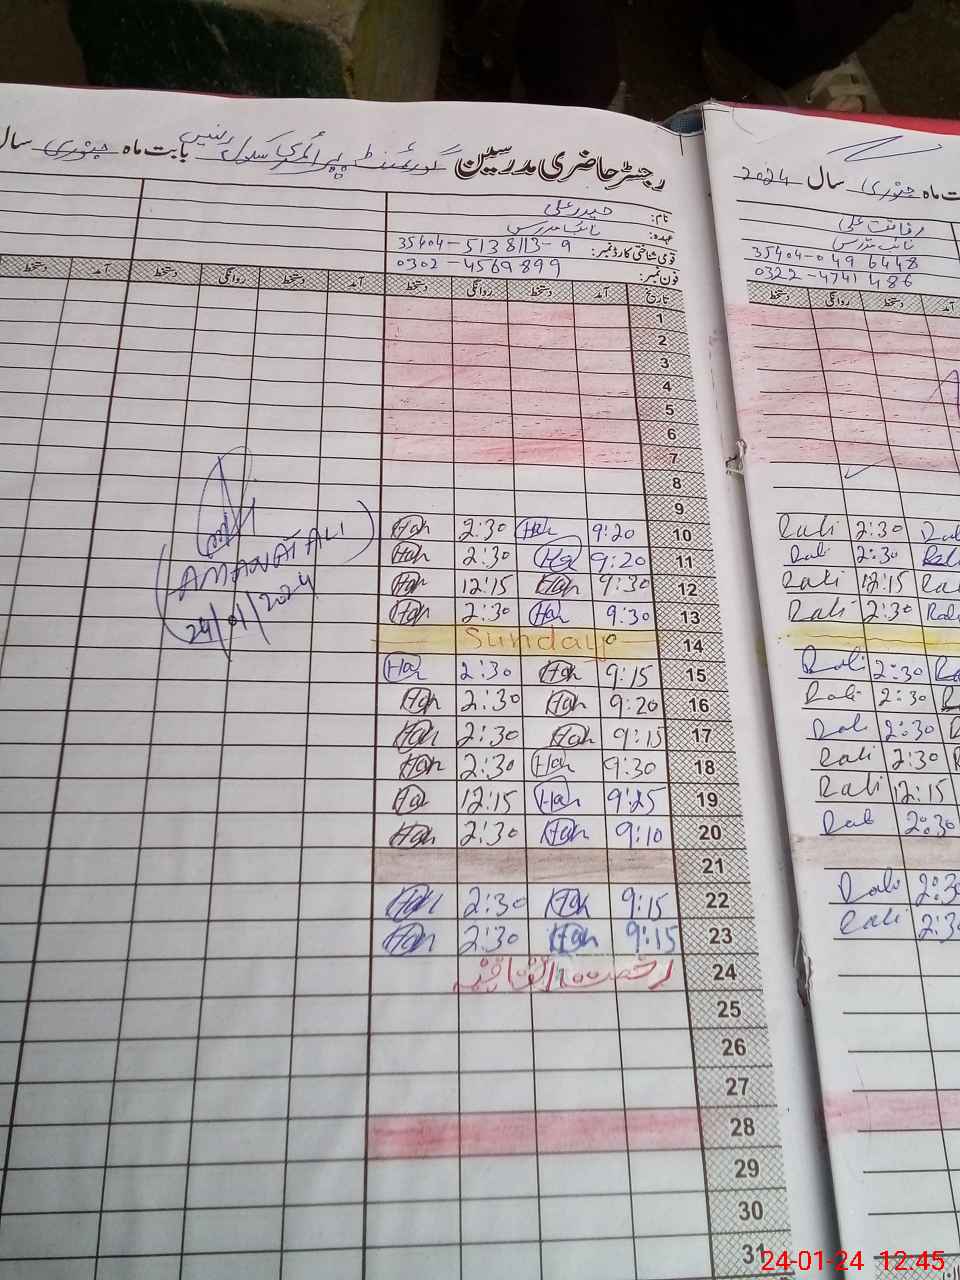 رجسٹر حاضری مدرسین گورنمنٹ پرائمری سکول بابت ماہ جنوری سال
نام: حیدر علی
عہدہ: نائب مدرس
قومی شناختی کارڈ نمبر: 35404-5138113-9
فون نمبر: 0302-4569899
تاریخ آمد دستخط روانگی دستخط آمد دستخط روانگی دستخط آمد دستخط
1
2
3
4
5
6
7
8
9
10 9:20 Hah 2:30 Hah
11 9:20 Hai 2:30 Hah
12 9:30 Hah 12:15 Hah
13 9:30 Hah 2:30 Hah
14 Sunday
15 9:15 Hah 2:30 Hai
16 9:20 Hah 2:30 Hah
17 9:15 Hah 2:30 Hah
18 9:30 Hah 2:30 Hah
19 9:25 Hah 12:15 Hai
20 9:10 Hah 2:30 Hah
21
22 9:15 Hah 2:30 Hah
23 9:15 Hah 2:30 Hah
24 رخصت اتفاقیہ
25
26
27
28
29
30
31
(AMANAT ALI)
24/01/2024
ماہ جنوری سال 2024
رفاقت علی
نائب مدرس
35404-0496448
0322-4741486
آمد دستخط روانگی دستخط
2:30 Rali
2:30 Rali
12:15 Rali
2:30 Rali
2:30 Rali
2:30 Rali
2:30 Rali
2:30 Rali
12:15 Rali
2:30 Rali
2:30 Rali
2:30 Rali
24-01-24 12.45